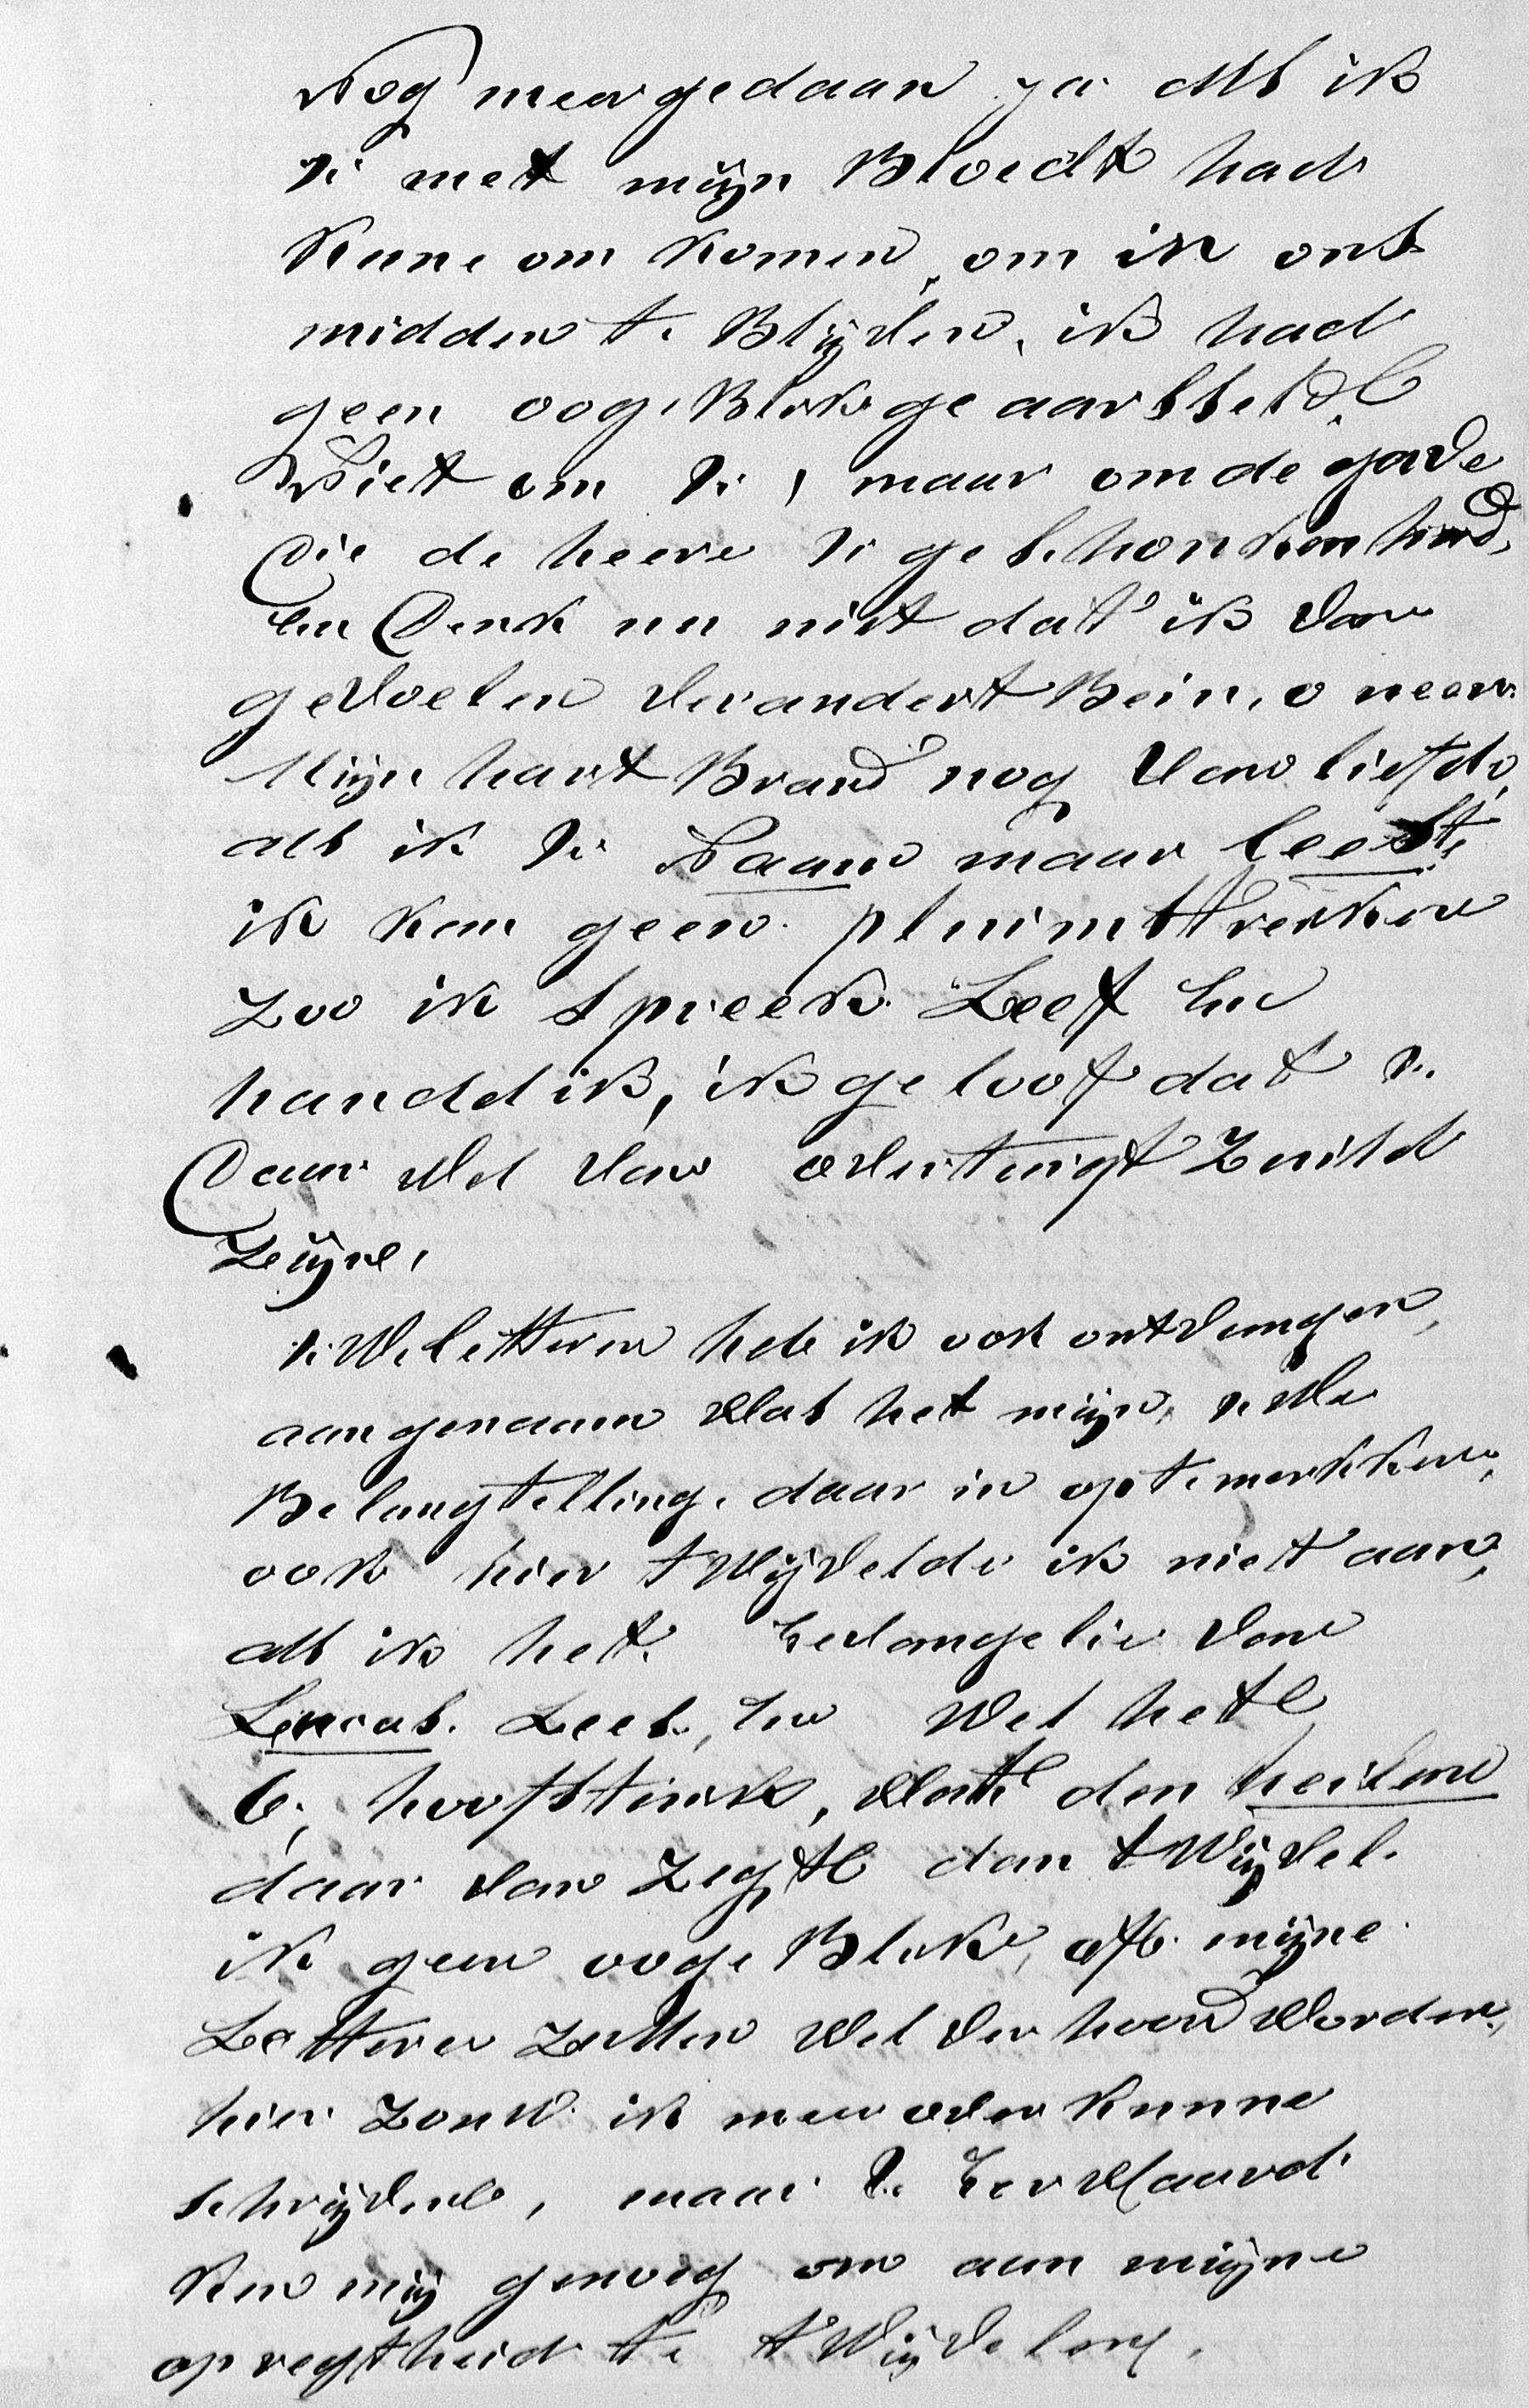 Nog meer gedaan ja Als ik
U met mijn Bloedt had
kune om komen, om in ons
midden te Blijven, ik had
geen oog Blik ge aarsselt
Niet om U, maar om de gave
Die de heere U geschonken had,
En Denk nu niet dat ik van
gevoelen verandert Bein, o neen
Mijn hart Brand nog van liefde,
als ik U Naam maar leest,
ik kan geen pluimstreiken
Zoo ik Spreek Leef En
handel ik, ik geloof dat U
Daar Wel van overtuigt Zuild
Zijn,
U We letteren heb ik ook ontvangen,
aangenaam Was het mijn, U We
Belangstelling daar in op te merkken,
ook hier tWijvelde ik niet aan,
als ik het Evangelie van
Lucas Lees, En Wel het
6, hoofstuk, Wat den heiland
daar van Zegt dan tWijvel
ik geen ooge Blik, of mijne
Letteren Zullen Wel verhoord Worden,
hier Zouw ik meer over kunne
schrijven, maar U EerWaard
Ken mij genoeg om aan mijne
opregtheid te tWijvelen,